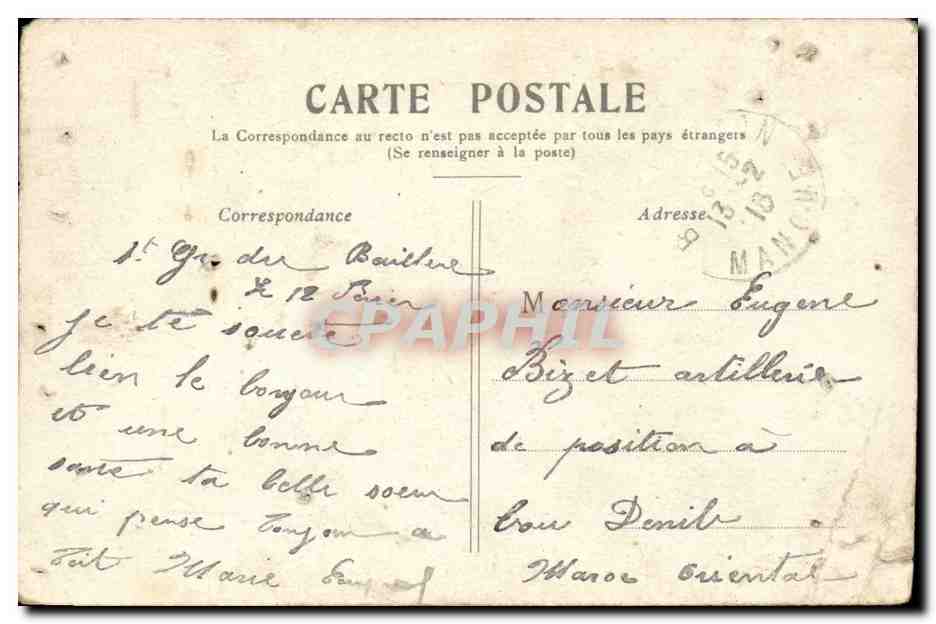 CARTE POSTALE
La Correspondance au recto n'est pas acceptée par tous les pays étrangers
(Se renseigner à la poste)
Correspondance
Adresse
MANCHE
13 2 18
St
le 12
je te souete
bien le bonjour
et une bonne
santé ta belle soeur
qui pense toujour a
toit Marie
Monsieur Eugene
Bizet artillerie
de position à
bou Denib
Maroc Oriental
CPAPHIL